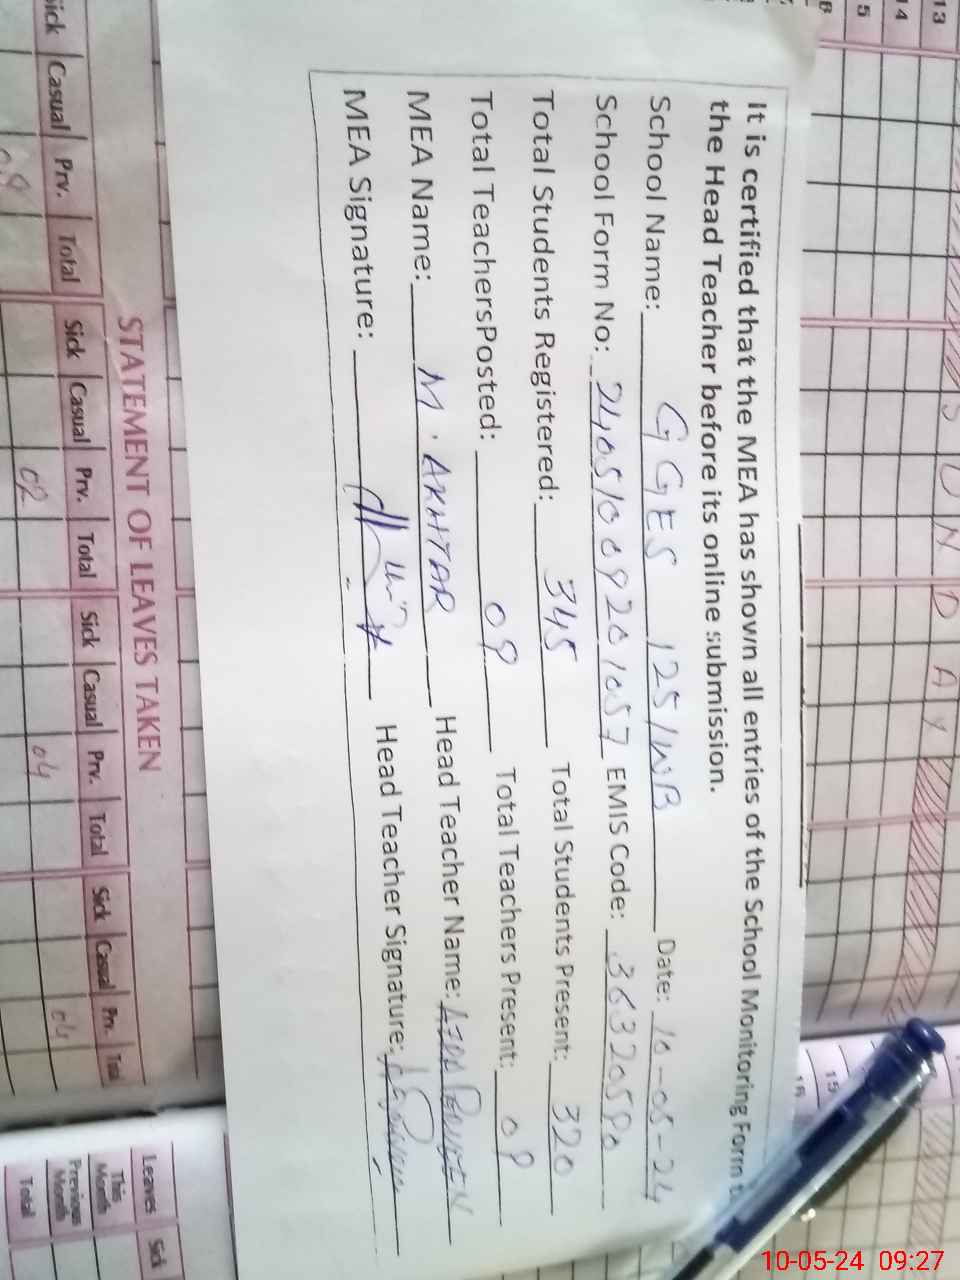 It is certified that the MEA has shown all entries of the School Monitoring Form t
the Head Teacher before its online submission.
School Name: GGES 125/WB Date: 10-05-24
School Form No: 24051009201057 EMIS Code: 36320590
Total Students Registered: 345 Total Students Present: 320
Total TeachersPosted: 09 Total Teachers Present: 09
MEA Name: M. AKHTAR Head Teacher Name:
MEA Signature: Head Teacher Signature:
STATEMENT OF LEAVES TAKEN
Sick Casual Prv. Total Sick Casual Prv. Total Sick Casual Prv. Total Sick Casual Prv. Total
02 04
Leaves Sick
This Month
Previous Month
Total
S U N D A Y
13
14
15
16
15
16
10-05-24 09:27